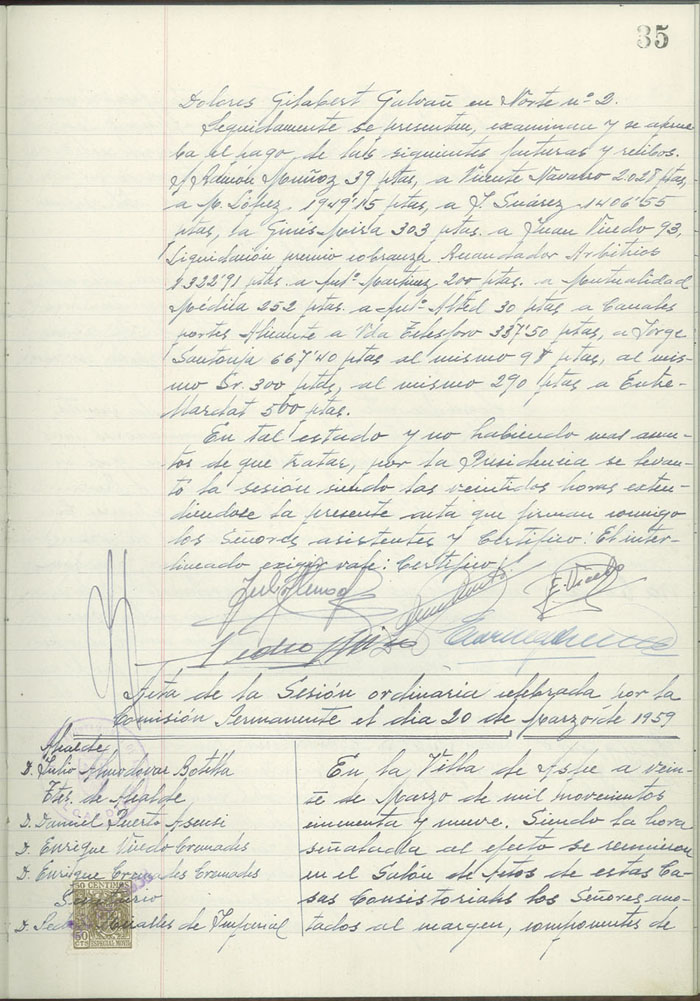 35
Dolores Gilabert Galvañ en Norte nº 2.
Seguidamente se presentan, examinan y se aprue-
ba el pago de las siguientes facturas y recibos.
Ramón Muñoz 39 ptas, a Vicente Navarro 2.028 ptas,
a M. López 1949'15 ptas, a J. Suárez 1406'55
ptas, a Ginés Mira 303 ptas. a Juan Vicedo 93,
Liquidación premio cobranza Recaudador Arbitrios
1322'91 ptas. a Martinez 200 ptas. a Mutualidad
Médica 252 ptas. a Abted 30 ptas a Canales
portes Alicante a Vda Telesforo 337'50 ptas, a Jorge
Santonja 667'40 ptas al mismo 98 ptas, al mis-
mo Sr. 300 ptas, al mismo 290 ptas a
500 ptas.
En tal estado y no habiendo mas asun-
tos de que tratar, por la Presidencia se levan-
tó la sesión siendo las veintidos horas exten-
diendose la presente acta que firman conmigo
los Señores asistentes y Certifico: El inter-
lineado exigir vale: Certifico:
E. Vicedo
Pedro
Acta de la Sesión ordinaria celebrada por la
Comisión Permanente el dia 20 de Marzo de 1959
Alcalde
D. Julio Almodovar Botella
Ttes. de Alcalde
D. Daniel Puerto Asensi
D. Enrique Vicedo Cremades
D. Enrique Cremades Cremades
Secretario
D. Canalles de Imperial
50 CENTIMOS
50
CTS
ESPECIAL MOVIL
En la Villa de Aspe a vein-
te de Marzo de mil novecientos
cincuenta y nueve. Siendo la hora
señalada al efecto se reunieron
en el Salón de Actos de estas Ca-
sas Consistoriales los Señores ano-
tados al margen, componentes de